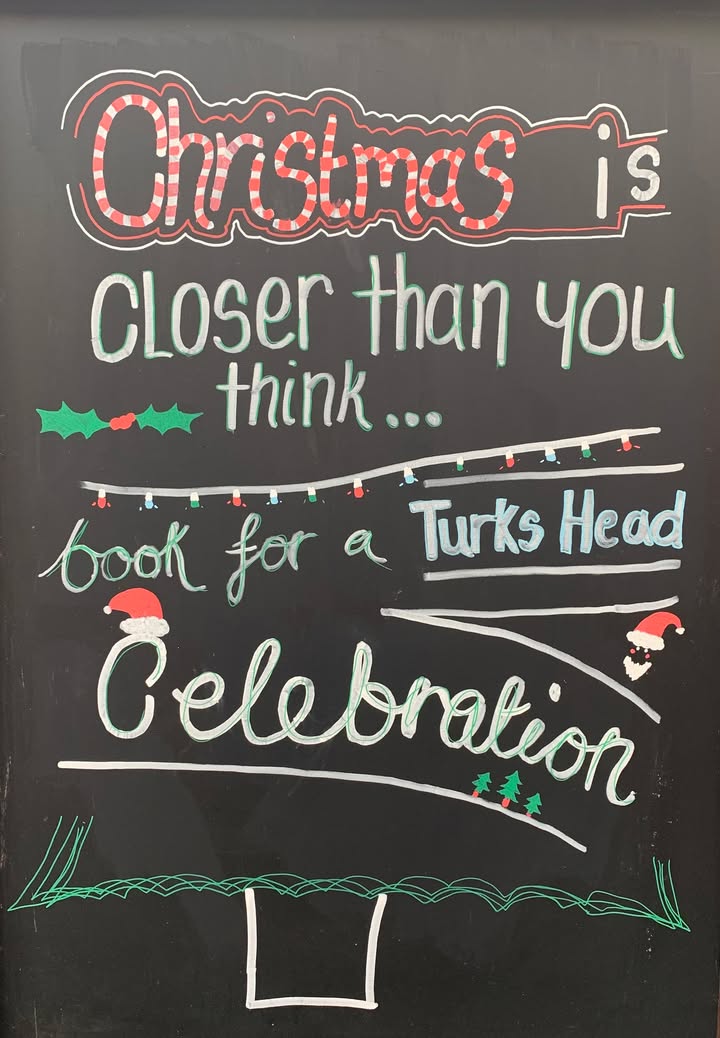 Christmas is
CLOSER than you
think...
book for a Turks Head
Celebration